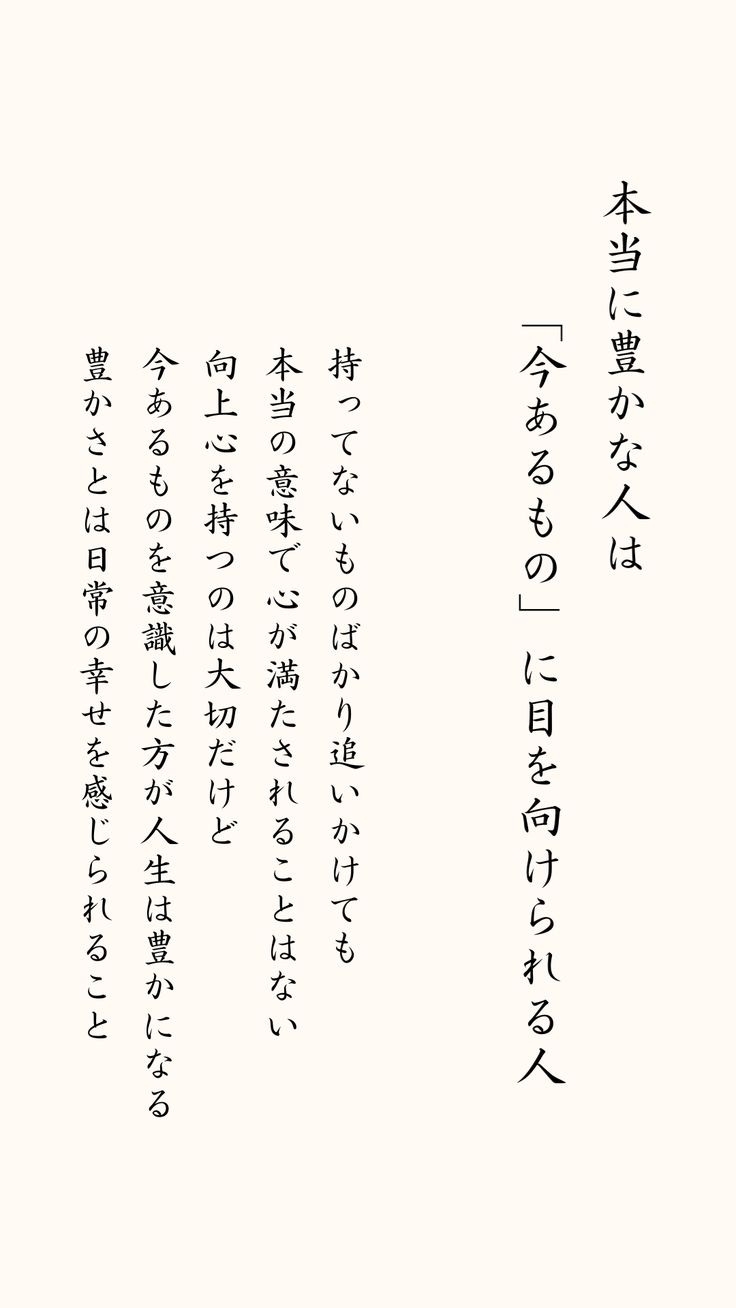 本当に豊かな人は
「今あるもの」に目を向けられる人
持ってないものばかり追いかけても
本当の意味で心が満たされることはない
向上心を持つのは大切だけど
今あるものを意識した方が人生は豊かになる
豊かさとは日常の幸せを感じられること